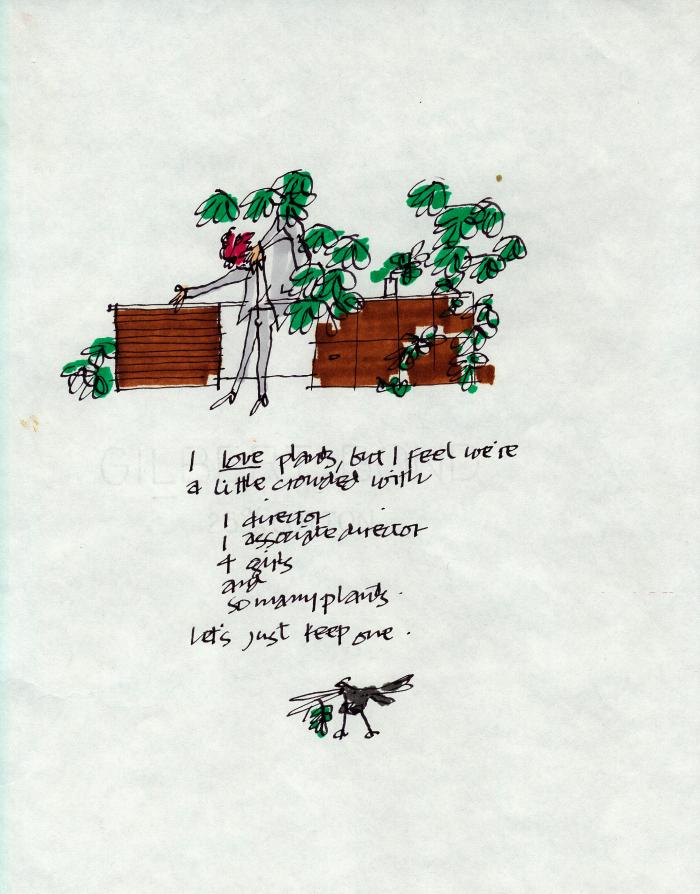 I love plants, but I feel we're
a little crowded with
1 director
1 associate director
4 girls
and
so many plants.
Let's just keep one.